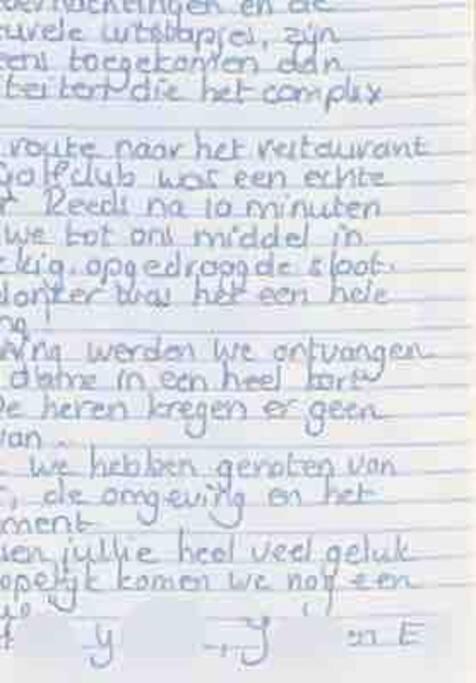 en de
uvele uitstapjes, zijn
eens toegekomen dan
die het complex
route naar het restaurant
Golfclub was een echte
Reeds na 10 minuten
we tot ons middel in
opgedroogde sloot.
donker was het een hele
ng
werden we ontvangen
dame in een heel kort
De heren kregen er geen
van
we hebben genoten van
, de omgeving en het
ment
jullie heel veel geluk
opelijk komen we nog een
y y en E